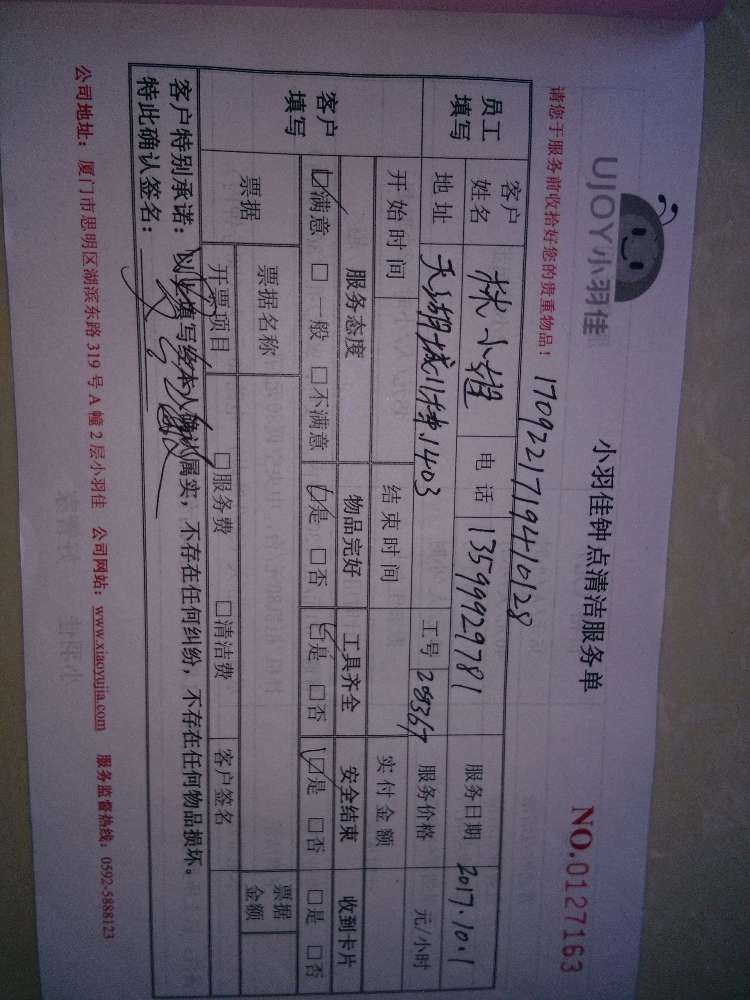 UJOY小羽佳
小羽佳钟点清洁服务单
NO.0127163
请您于服务前收拾好您的贵重物品！
1709221719410128
员工填写
客户姓名 林小姐 电话 13599929781 服务日期 2017.10.1
地址 天湖城 1403 工号 28367 服务价格 元/小时
开始时间 结束时间 实付金额
客户填写
服务态度 物品完好 工具齐全 安全结束 收到卡片
☑满意 □一般 □不满意 ☑是 □否 ☑是 □否 ☑是 □否 □是 □否
票据 票据名称 票据金额
开票项目 □服务费 □清洁费 客户签名
客户特别承诺：以上填写经本人确认属实，不存在任何纠纷，不存在任何物品损坏。
特此确认签名：
公司地址：厦门市思明区湖滨东路319号A幢2层小羽佳 公司网站：www.xiaoyujia.com 服务监督热线：0592-5888123